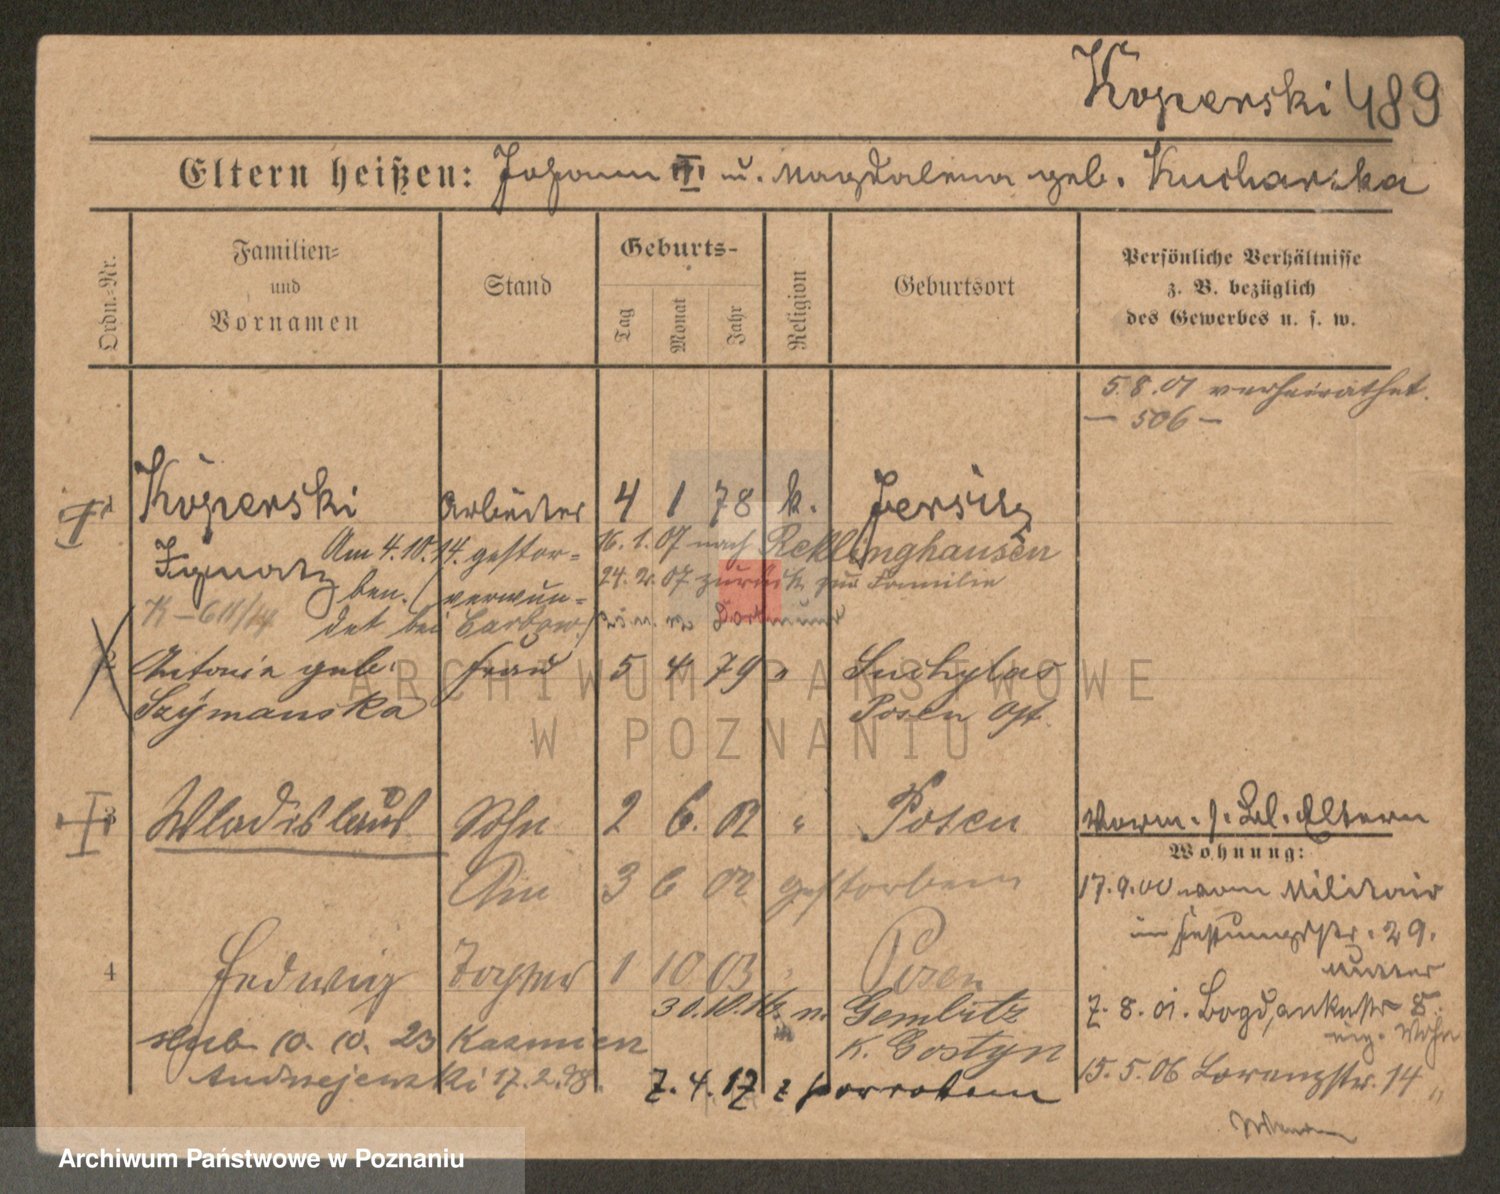 Koperski 489
Eltern heißen: Johann III u. Magdalena geb. Kucharska
Ordn.-Nr.
Familien-
und
Vornamen
Stand
Geburts-
Tag
Monat
Jahr
Religion
Geburtsort
Persönliche Verhältnisse
z. B. bezüglich
des Gewerbes u. s. w.
5.8.01 verheirathet.
— 506 —
1 Koperski Arbeiter 4 1 78 k. Jersitz
Ignatz
Am 4.10.14. gestor-
ben. verwun-
det bei
K-611/14
16.1.07 nach Recklinghausen
24.2.07 zurück zur Familie
Dortmund
2 Antonie geb. Frau 5 4 79 " Suchylas
Szymanska Posen Ost.
3 Wladislaus Sohn 2 6. 02 " Posen
Am 3 6 02 gestorben
4 Hedwig Tochter 1 10 03 " Posen
30.10.16. n. Gembitz
K. Gostyn
slub 10. 10. 23 Kazmierz
Andrzejewski 17.2.98.
7.4.17 z powrotem
Vorm. s. Bl. Eltern
Wohnung:
17.9.00 vom Militair
in Festungsstr. 29.
Mutter
7.8.01. Bogdankastr 8.
eig. Wohn
15.5.06 Lorenzstr. 14
ARCHIWUM PAŃSTWOWE
W POZNANIU
Archiwum Państwowe w Poznaniu